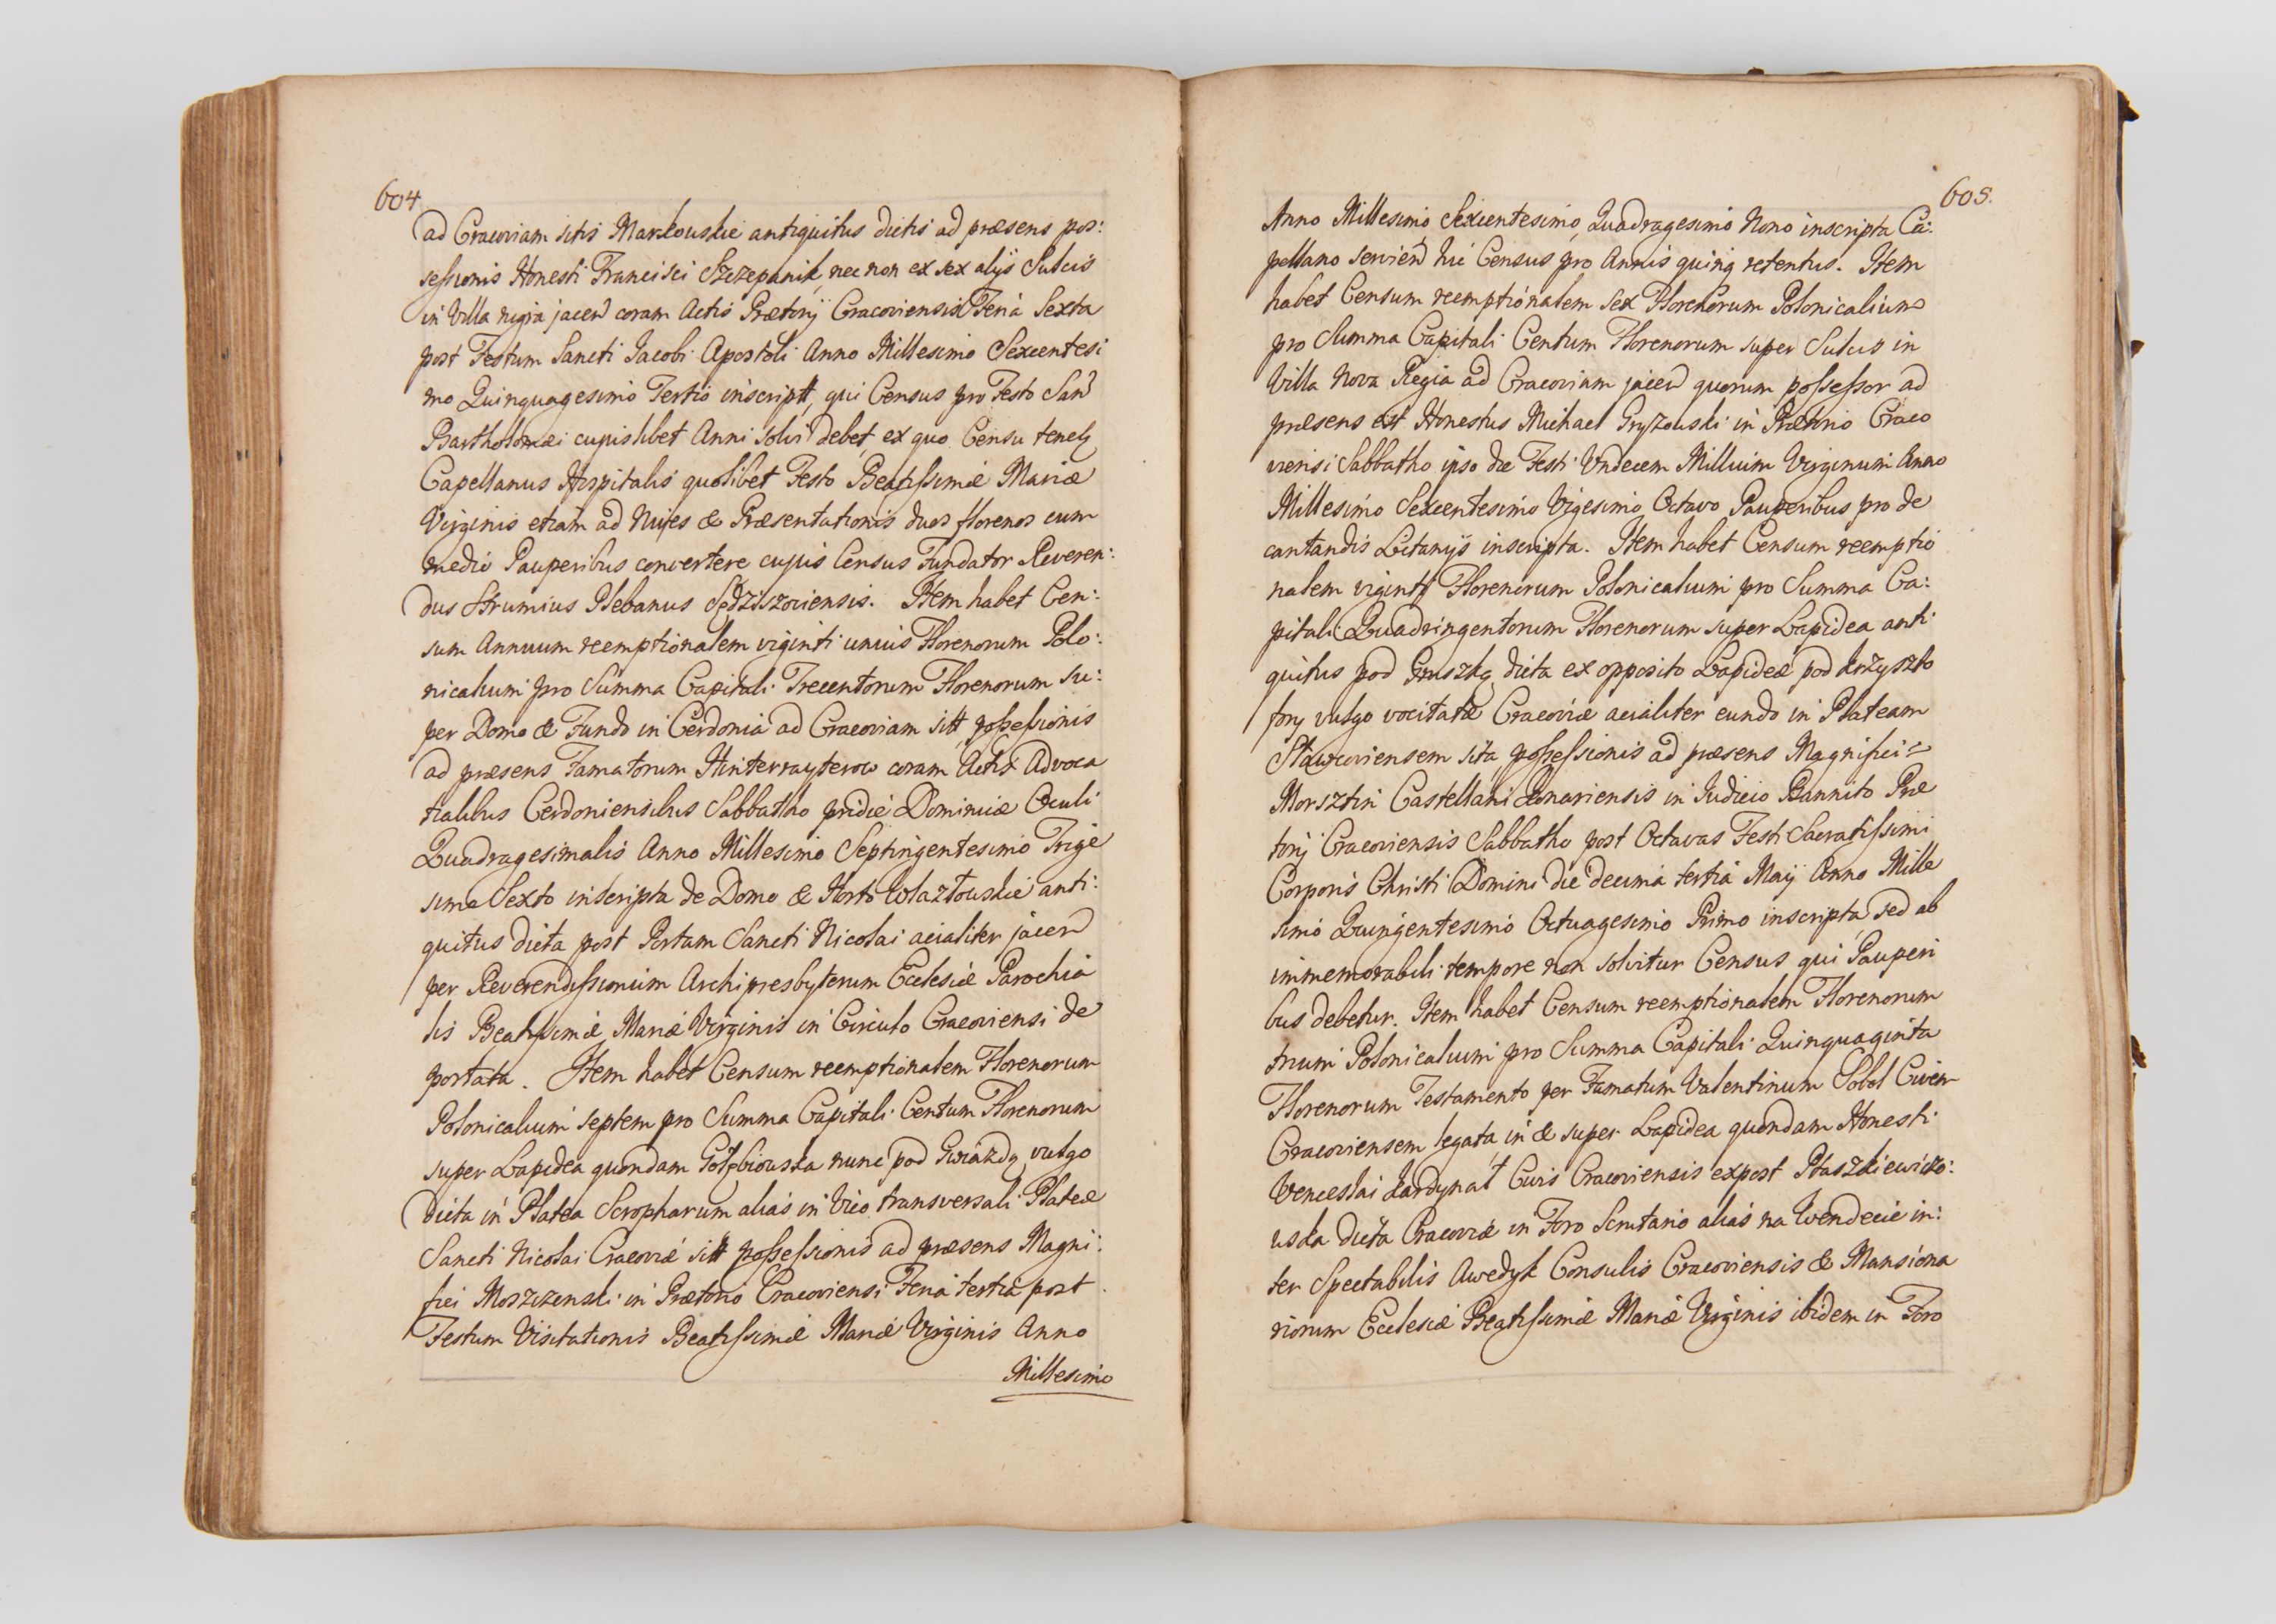 604
ad Cracoviam sitis Markowskie antiquitus dictis ad præsens pos:
sessionis Honesti Francisci Szczepanik, nec non ex sex alijs Sulcis
in Villa regia jacen coram Actis Prætorij Cracoviensis Feria Sexta
post Festum Sancti Jacobi Apostoli Anno Millesimo Sexcentesi
mo Quinquagesimo Tertio inscriptt, qui Census pro Festo San
Bartholomæi cujuslibet Anni solvi debet, ex quo Censu tenetz
Capellanus Hospitalis quolibet Festo Beatissimæ Mariæ
Virginis etiam ad Nives & Præsentationis duos florenos cum
medio Pauperibus convertere cujus Census Fundator Reveren:
dus Strumius Plebanus Sędziszoviensis. Item habet Cen:
sum Annuum reemptionalem viginti unius Florenorum Polo:
nicalium pro Summa Capitali Trecentorum Florenorum su:
per Domo & Fundo in Cerdonia ad Cracoviam sitt, possessionis
ad præsens Famatorum Hinterrayterow coram Actis Advoca
tialibus Cerdoniensibus Sabbatho pridie Dominicæ Oculi
Quadragesimalis Anno Millesimo Septingentesimo Trige
simo Sexto inscripta de Domo & Horto Wlazłowskie anti:
quitus dicta post Portam Sancti Nicolai acialiter jacen
per Reverendissimum Archipresbyterum Ecclesiæ Parochia
lis Beatissimæ Mariæ Virginis in Circulo Cracoviensi de
portata. Item habet Censum reemptionalem Florenorum
Polonicalium septem pro Summa Capitali Centum Florenorum
super Lapidea quondam Gołębiowska nunc pod Gwiazdą vulgo
dicta in Platea Scropharum alias in Vico transversali Plateæ
Sancti Nicolai Cracoviæ sitt possessionis ad præsens Magni:
fici Moszczenski in Prætorio Cracoviensi Feria tertia post
Festum Visitationis Beatissimæ Mariæ Virginis Anno
Millesimo
605.
Anno Millesimo Sexcentesimo Quadragesimo Nono inscripta Ca:
pellano servien hic Census pro Annis quinq retentus. Item
habet Censum reemptionalem sex Florenorum Polonicalium
pro Summa Capitali Centum Florenorum super Sulcis in
Villa Nova Regia ad Cracoviam jacen quorum possessor ad
præsens est Honestus Michael Gryzowski in Prætorio Craco
viensi Sabbatho ipso die Festi Undecem Millium Virginum Anno
Millesimo Sexcentesimo Vigesimo Octavo Pauperibus pro de
cantandis Litanijs inscripta. Item habet Censum reemptio
nalem viginti Florenorum Polonicalium pro Summa Ca:
pitali Quadringentorum Florenorum super Lapidea anti
quitus pod Gruszką dicta ex opposito Lapideæ pod krzyszto
fory vulgo vocitatæ Cracoviæ acialiter eundo in Plateam
Sławcoviensem sita, possessionis ad præsens Magnifici
Morsztin Castellani Konariensis in Judicio Bannito Præ
torij Cracoviensis Sabbatho post Octavas Festi Sacratissimi
Corporis Christi Domini die decima tertia Maij Anno Mille
simo Quingentesimo Octuagesimo Primo inscripta, sed ab
immemorabili tempore non solvitur Census qui Pauperi
bus debetur. Item habet Censum reemptionalem Florenorum
trium Polonicalium pro Summa Capitali Quinquaginta
Florenorum Testamento per Famatum Valentinum Sobol Civem
Cracoviensem legata, in & super Lapidea quondam Honesti
Venceslai Kardynał Civis Cracoviensis expost Ptaszkiewiczo:
wska dicta Cracoviæ in Foro Scrutario alias na Wendecie in:
ter Spectabilis Awedyk Consulis Cracoviensis & Mansiona
riorum Ecclesiæ Beatissimæ Mariæ Virginis ibidem in Foro